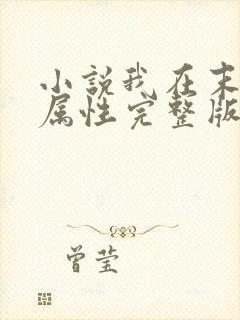 小说我在末
属性完整版
曾莹